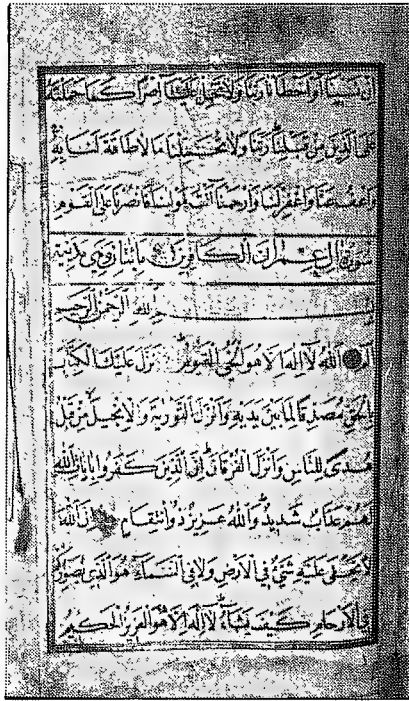 اِنْ نَسِينَا اَوْ اَخْطَانَا رَبَّنَا وَلَا تَحْمِلْ عَلَيْنَا اِصْرًا كَمَا حَمَلْتَهُ
عَلَى الَّذِينَ مِنْ قَبْلِنَا رَبَّنَا وَلَا تُحَمِّلْنَا مَا لَا طَاقَةَ لَنَا بِهِ
وَاعْفُ عَنَّا وَاغْفِرْ لَنَا وَارْحَمْنَا اَنْتَ مَوْلٰنَا فَانْصُرْنَا عَلَى الْقَوْمِ
سورة ال عمران الكافرين وهي مدنية
بسم الله الرحمن الرحيم
الٓمٓ اَللّٰهُ لَا اِلٰهَ اِلَّا هُوَ الْحَيُّ الْقَيُّومُ نَزَّلَ عَلَيْكَ الْكِتَابَ
بِالْحَقِّ مُصَدِّقًا لِمَا بَيْنَ يَدَيْهِ وَاَنْزَلَ التَّوْرٰيةَ وَالْاِنْجِيلَ مِنْ قَبْلُ
هُدًى لِلنَّاسِ وَاَنْزَلَ الْفُرْقَانَ اِنَّ الَّذِينَ كَفَرُوا بِاٰيَاتِ اللّٰهِ
لَهُمْ عَذَابٌ شَدِيدٌ وَاللّٰهُ عَزِيزٌ ذُو انْتِقَامٍ اِنَّ اللّٰهَ
لَا يَخْفٰى عَلَيْهِ شَيْءٌ فِي الْاَرْضِ وَلَا فِي السَّمَاءِ هُوَ الَّذِي يُصَوِّرُكُمْ
فِي الْاَرْحَامِ كَيْفَ يَشَاءُ لَا اِلٰهَ اِلَّا هُوَ الْعَزِيزُ الْحَكِيمُ